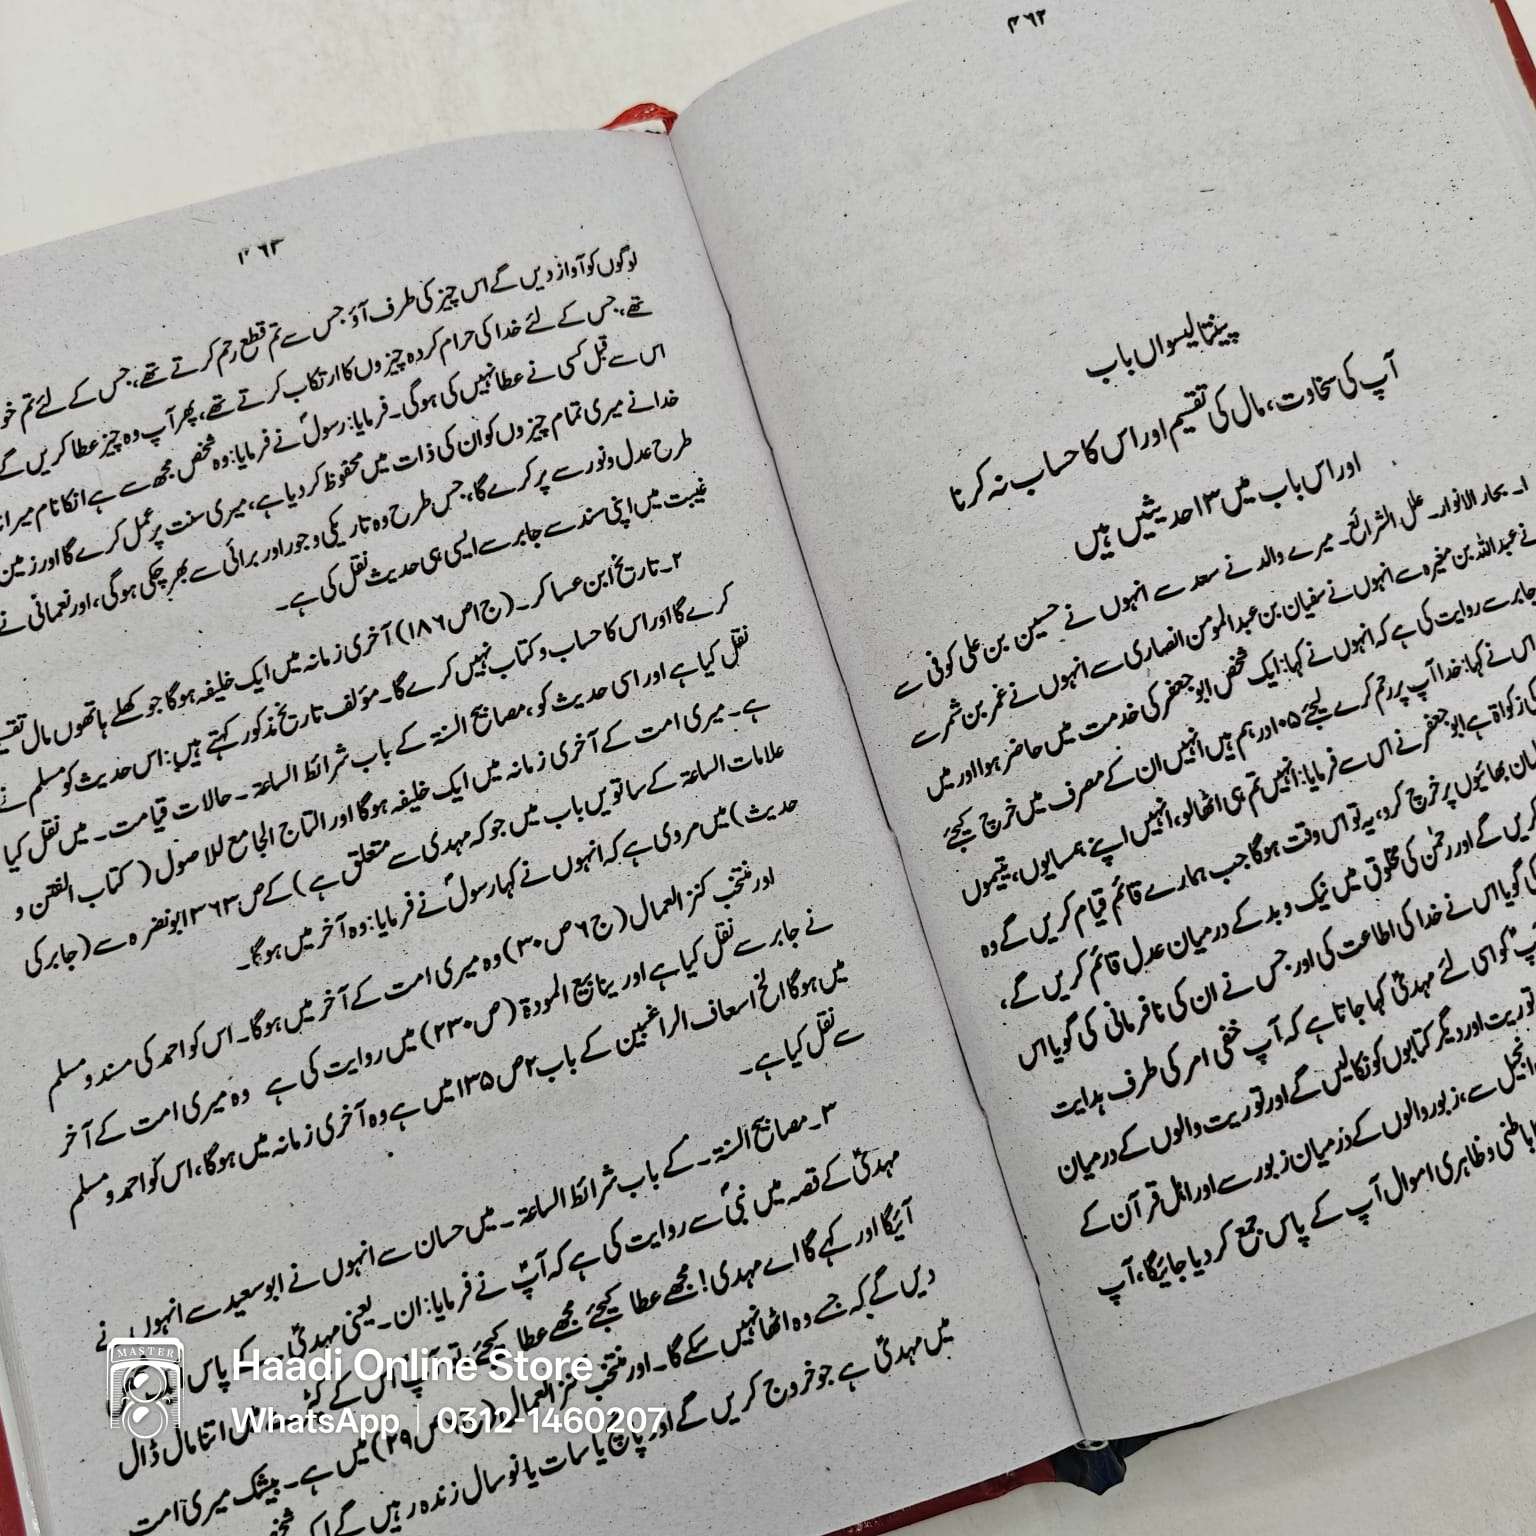 ۴۶۲
پینتالیسواں باب
آپ کی سخاوت، مال کی تقسیم اور اس کا حساب نہ کرنا
اور اس باب میں ۱۳ حدیثیں ہیں
۱۔ بحار الانوار۔ علل الشرائع۔ میرے والد نے سعد سے انہوں نے حسین بن علی کوفی سے
نے عبداللہ بن مغیرہ سے انہوں نے سفیان بن عبدالمومن انصاری سے انہوں نے عمر بن شمر سے
جابر سے روایت کی ہے کہ انہوں نے کہا: ایک شخص ابو جعفر کی خدمت میں حاضر ہوا اور میں
اس نے کہا: خدا آپ پر رحم کرے لیجئے ۵۰۰ اور ہم ہیں انہیں ان کے مصرف میں خرچ کیجئے
کی زکواۃ ہے ابو جعفر نے اس سے فرمایا: انہیں تم ہی اٹھا لو، انہیں اپنے ہمسایوں، یتیموں
بھائیوں پر خرچ کرو، یہ تو اس وقت ہوگا جب ہمارے قائم قیام کریں گے وہ
کریں گے اور رحمٰن کی مخلوق میں نیک و بد کے درمیان عدل قائم کریں گے،
کی گویا اس نے خدا کی اطاعت کی اور جس نے ان کی نافرمانی کی گویا اس
آپ کو اسی لئے مہدیؑ کہا جاتا ہے کہ آپ خفی امر کی طرف ہدایت
توریت اور دیگر کتابوں کو نکالیں گے اور توریت والوں کے درمیان
انجیل سے، زبور والوں کے درمیان زبور سے اور اہل قرآن کے
باطنی و ظاہری اموال آپ کے پاس جمع کر دیا جائیگا، آپ
۴۶۳
لوگوں کو آواز دیں گے اس چیز کی طرف آؤ جس سے تم قطع رحم کرتے تھے، جس کے لئے تم
تھے، جس کے لئے خدا کی حرام کردہ چیزوں کا ارتکاب کرتے تھے، پھر آپ وہ چیز عطا کریں گے
اس سے قبل کسی نے عطا نہیں کی ہوگی۔ فرمایا: رسولؐ نے فرمایا: وہ شخص مجھ سے ہے انکا نام میرا
خدا نے میری تمام چیزوں کو ان کی ذات میں محفوظ کر دیا ہے، میری سنت پر عمل کرے گا اور زمین
طرح عدل و نور سے پر کرے گا، جس طرح وہ تاریکی و جور اور برائی سے بھر چکی ہوگی، اور نعمانی نے
غیبت میں اپنی سند سے جابر سے ایسی ہی حدیث نقل کی ہے۔
۲۔ تاریخ ابن عساکر۔ (ج ۱ ص ۱۸۶) آخری زمانہ میں ایک خلیفہ ہوگا جو کھلے ہاتھوں مال
کرے گا اور اس کا حساب و کتاب نہیں کرے گا۔ مؤلف تاریخ مذکور کہتے ہیں: اس حدیث کو مسلم نے
نقل کیا ہے اور اسی حدیث کو، مصابیح السنۃ کے باب شرائط الساعۃ۔ حالات قیامت۔ میں نقل کیا
ہے۔ میری امت کے آخری زمانہ میں ایک خلیفہ ہوگا اور التاج الجامع للاصول (کتاب الفتن و
علامات الساعۃ کے ساتویں باب میں جو کہ مہدی سے متعلق ہے) کے ص ۳۶۳ ابونضرہ سے (جابر کی
حدیث) میں مروی ہے کہ انہوں نے کہا رسولؐ نے فرمایا: وہ آخر میں ہوگا۔
اور منتخب کنز العمال (ج ۶ ص ۳۰) وہ میری امت کے آخر میں ہوگا۔ اس کو احمد کی مسند و مسلم
نے جابر سے نقل کیا ہے اور ینابیع المودۃ (ص ۲۳۰) میں روایت کی ہے وہ میری امت کے آخر
میں ہوگا الخ اسعاف الراغبین کے باب ۲ ص ۱۳۵ میں ہے وہ آخری زمانہ میں ہوگا، اس کو احمد و مسلم
سے نقل کیا ہے۔
۳۔ مصابیح السنۃ۔ کے باب شرائط الساعۃ۔ میں حسان سے انہوں نے ابو سعید سے انہوں نے
مہدیؑ کے قصہ میں نبیؐ سے روایت کی ہے کہ آپؐ نے فرمایا: ان۔ یعنی مہدیؑ۔ کے پاس
آئیگا اور کہے گا اے مہدی! مجھے عطا کیجئے مجھے عطا کیجئے تو آپ اس کے میں اتنا مال ڈال
دیں گے کہ جسے وہ اٹھا نہیں سکے گا۔ اور منتخب کنز العمال (ص ۲۹) میں ہے۔ بیشک میری امت
میں مہدیؑ ہے جو خروج کریں گے اور پانچ یا سات یا نو سال زندہ رہیں گے
Haadi Online Store
WhatsApp | 0312-1460207
MASTER